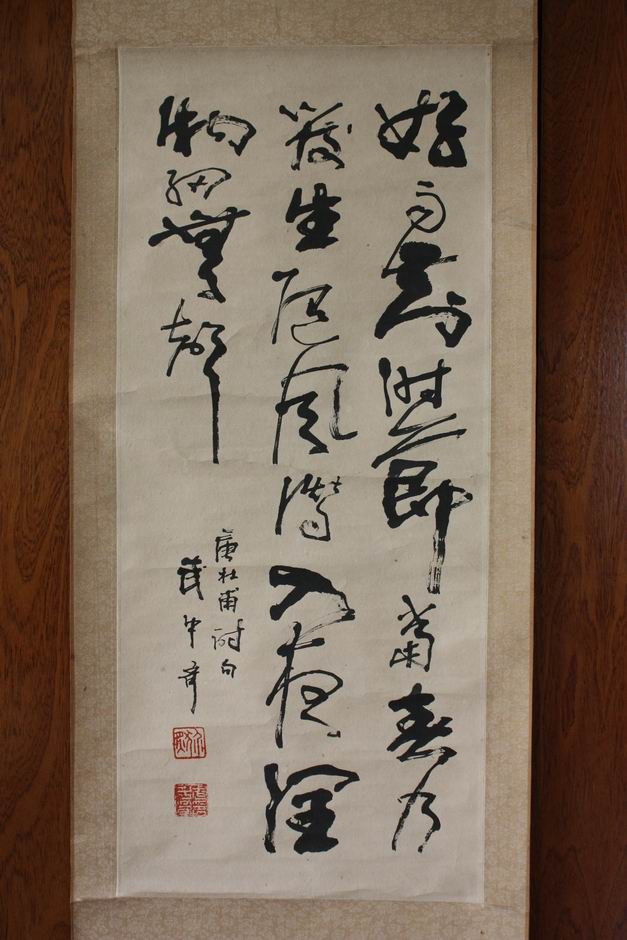 好雨知時節當春乃
發生隨風潛入夜潤
物細無聲
唐杜甫詩句